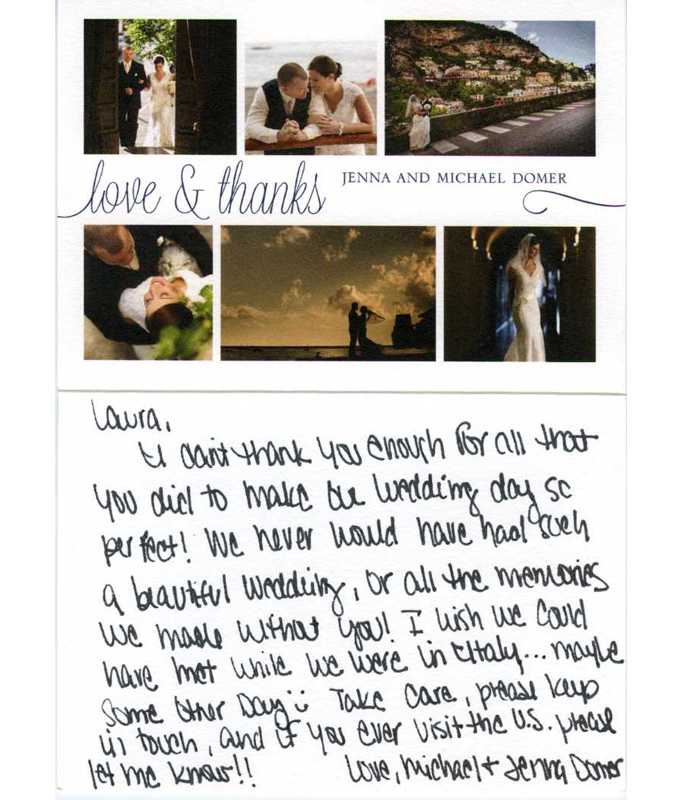 love & thanks
JENNA AND MICHAEL DOMER
Laura,
I can't thank you enough for all that
you did to make our wedding day so
perfect! We never would have had such
a beautiful wedding, or all the memories
we made without you! I wish we could
have met while we were in Italy... maybe
some other day :) Take care, please keep
in touch, and if you ever visit the U.S. please
let me know!!
Love, Michael + Jenna Domer